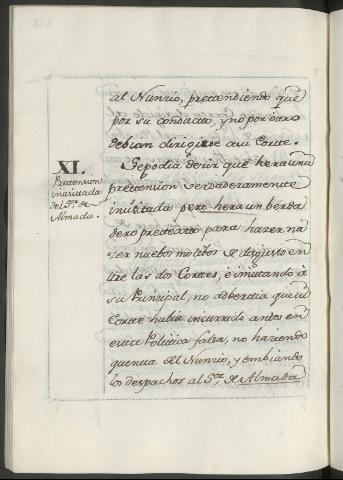 al Nunzio, prettendiendo que
por su conducto, y no por otro
debian dirigirse a su Corte.
XI.
Pretension
inusitada
del Sor. de
Almada.
Se podia decir que hera una
prettension verdaderamente
inusitada pero hera un berda
dero prettexto para hazer na
zer nuebos motibos de disgusto en
tre las dos Corttes, e imitando à
su Prinzipal, no adbertia que su
Corte habia incurrido antes en
esta Politica falsa, no haziendo
quenta del Nunzio, y embiando
los despachos al Sor. de Almada